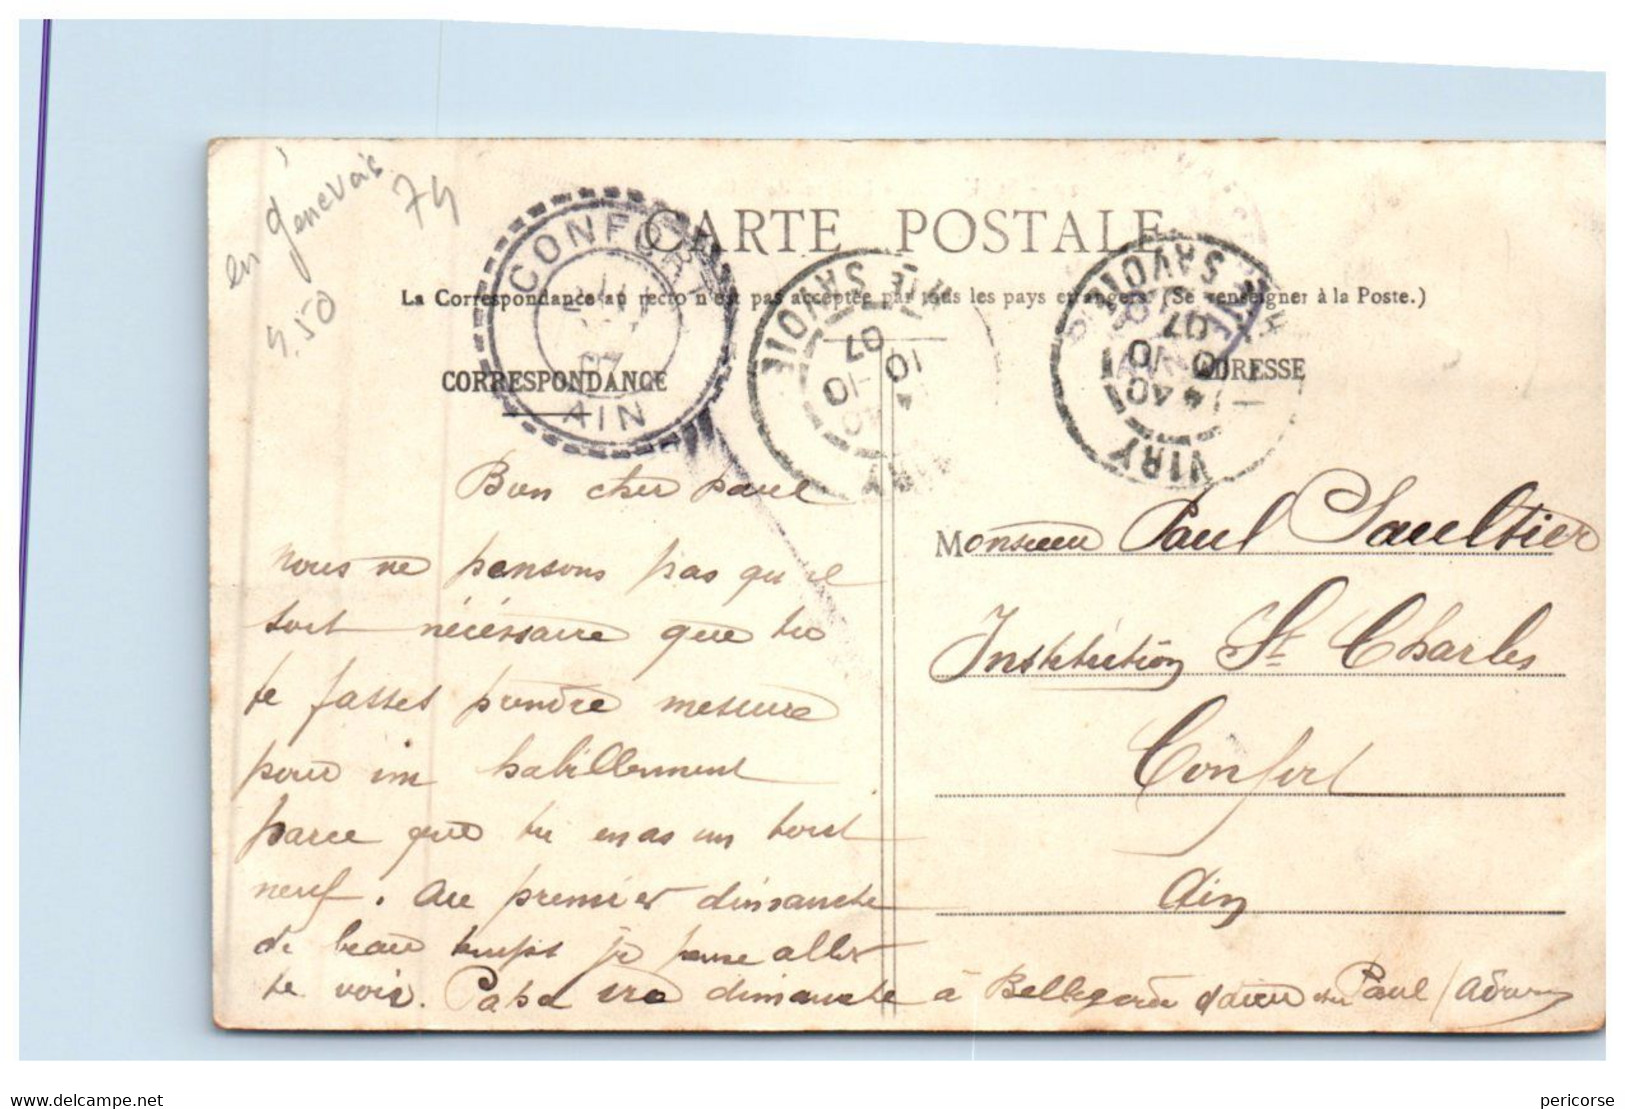 en genevois
74
4.50
CARTE POSTALE
La Correspondance au recto n'est pas acceptée par tous les pays étrangers. (Se renseigner à la Poste.)
CORRESPONDANCE
ADRESSE
CONFORT
07
AIN
VIRY
10
10
07
HTE SAVOIE
VIRY
4 40
10 10
07
HTE SAVOIE
Bon cher Paul
nous ne pensons pas qu'il
soit nécessaire que tu
te fasses prendre mesure
pour un habillement
parce que tu en as un tout
neuf. Au premier dimanche
de beau temps je pense aller
te voir. Papa ira dimanche à Bellegarde Paul
Monsieur Paul Saultier
Institution St Charles
Confort
Ain
delcampe.net
pericorse